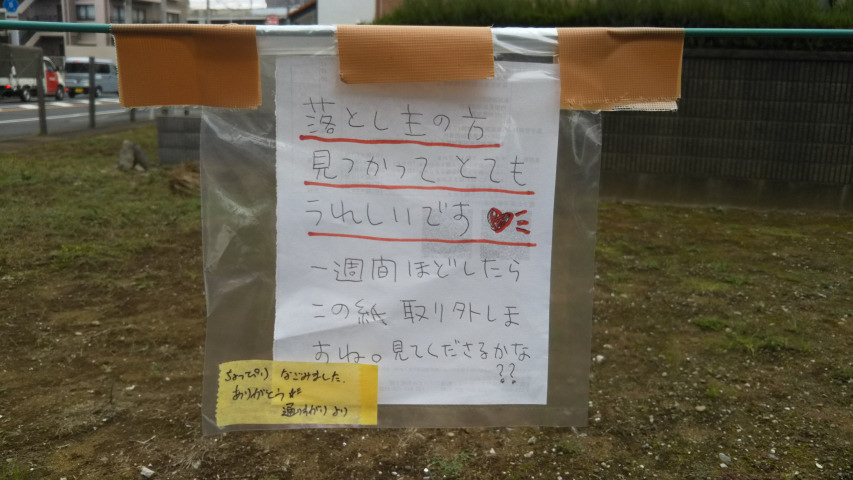 落とし主の方
見つかって とても
うれしいです
一週間ほどしたら
この紙 取り外しま
すね。見てくださるかな
??
ちょっぴり なごみました。
ありがとうね
通りすがりより